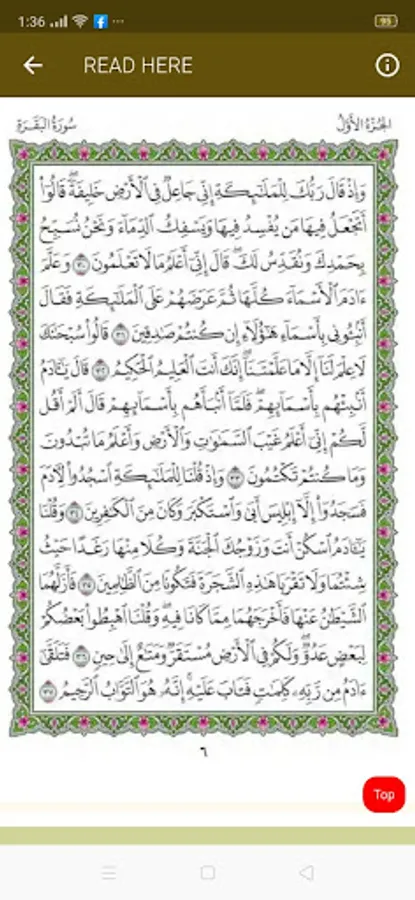 1:36 ... 95
READ HERE
الجزء الأول
سورة البقرة
وَإِذْ قَالَ رَبُّكَ لِلْمَلَٰٓئِكَةِ إِنِّي جَاعِلٌ فِي ٱلْأَرْضِ خَلِيفَةًۖ قَالُوٓا۟
أَتَجْعَلُ فِيهَا مَن يُفْسِدُ فِيهَا وَيَسْفِكُ ٱلدِّمَآءَ وَنَحْنُ نُسَبِّحُ
بِحَمْدِكَ وَنُقَدِّسُ لَكَۖ قَالَ إِنِّيٓ أَعْلَمُ مَا لَا تَعْلَمُونَ ٣٠ وَعَلَّمَ
ءَادَمَ ٱلْأَسْمَآءَ كُلَّهَا ثُمَّ عَرَضَهُمْ عَلَى ٱلْمَلَٰٓئِكَةِ فَقَالَ
أَنۢبِـُٔونِي بِأَسْمَآءِ هَٰٓؤُلَآءِ إِن كُنتُمْ صَٰدِقِينَ ٣١ قَالُوا۟ سُبْحَٰنَكَ
لَا عِلْمَ لَنَآ إِلَّا مَا عَلَّمْتَنَآۖ إِنَّكَ أَنتَ ٱلْعَلِيمُ ٱلْحَكِيمُ ٣٢ قَالَ يَٰٓـَٔادَمُ
أَنۢبِئْهُم بِأَسْمَآئِهِمْۖ فَلَمَّآ أَنۢبَأَهُم بِأَسْمَآئِهِمْ قَالَ أَلَمْ أَقُل
لَّكُمْ إِنِّيٓ أَعْلَمُ غَيْبَ ٱلسَّمَٰوَٰتِ وَٱلْأَرْضِ وَأَعْلَمُ مَا تُبْدُونَ
وَمَا كُنتُمْ تَكْتُمُونَ ٣٣ وَإِذْ قُلْنَا لِلْمَلَٰٓئِكَةِ ٱسْجُدُوا۟ لِأٓدَمَ
فَسَجَدُوٓا۟ إِلَّآ إِبْلِيسَ أَبَىٰ وَٱسْتَكْبَرَ وَكَانَ مِنَ ٱلْكَٰفِرِينَ ٣٤ وَقُلْنَا
يَٰٓـَٔادَمُ ٱسْكُنْ أَنتَ وَزَوْجُكَ ٱلْجَنَّةَ وَكُلَا مِنْهَا رَغَدًا حَيْثُ
شِئْتُمَا وَلَا تَقْرَبَا هَٰذِهِ ٱلشَّجَرَةَ فَتَكُونَا مِنَ ٱلظَّٰلِمِينَ ٣٥ فَأَزَلَّهُمَا
ٱلشَّيْطَٰنُ عَنْهَا فَأَخْرَجَهُمَا مِمَّا كَانَا فِيهِۖ وَقُلْنَا ٱهْبِطُوا۟ بَعْضُكُمْ
لِبَعْضٍ عَدُوٌّۖ وَلَكُمْ فِي ٱلْأَرْضِ مُسْتَقَرٌّ وَمَتَٰعٌ إِلَىٰ حِينٍ ٣٦ فَتَلَقَّىٰٓ
ءَادَمُ مِن رَّبِّهِۦ كَلِمَٰتٍ فَتَابَ عَلَيْهِۚ إِنَّهُۥ هُوَ ٱلتَّوَّابُ ٱلرَّحِيمُ ٣٧
٦
Top